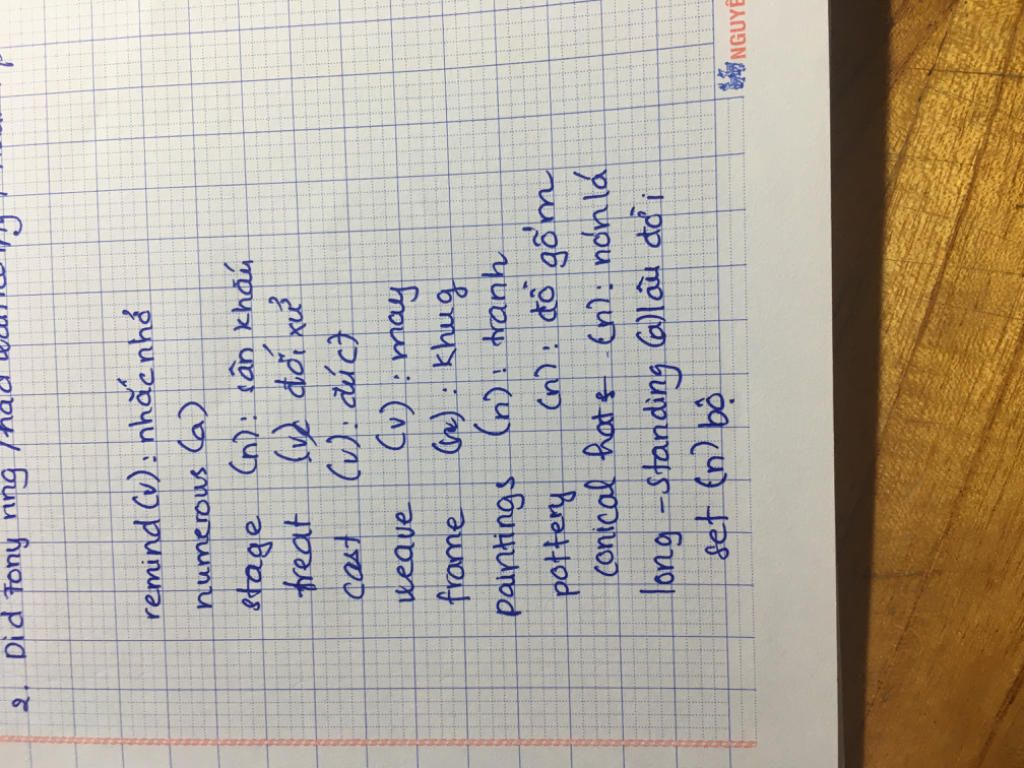 2. Did Tony
remind (v) : nhắc nhở
numerous (a)
stage (n) : sân khấu
treat (v) đối xử
cast (v) : đúc
weave (v) : may
frame (n) : khug
paintings (n) : tranh
pottery (n) : đồ gốm
conical hats (n) : nón lá
long - standing (a) lâu đời
set (n) bộ
NGUYÊ